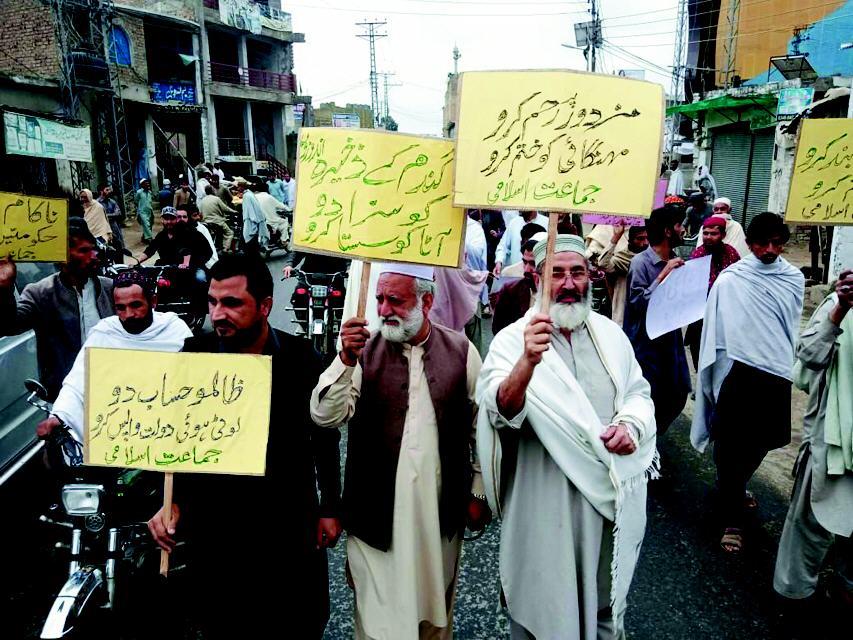 ناکام
ظالمو حساب دو
لوٹی ہوئی دولت واپس کرو
جماعت اسلامی
گندم کے ذخیرہ
کو سزا دو
آٹا کو سستا کرو
مزدور پر رحم کرو
مہنگائی کو ختم کرو
جماعت اسلامی
کرو
کرو
اسلامی